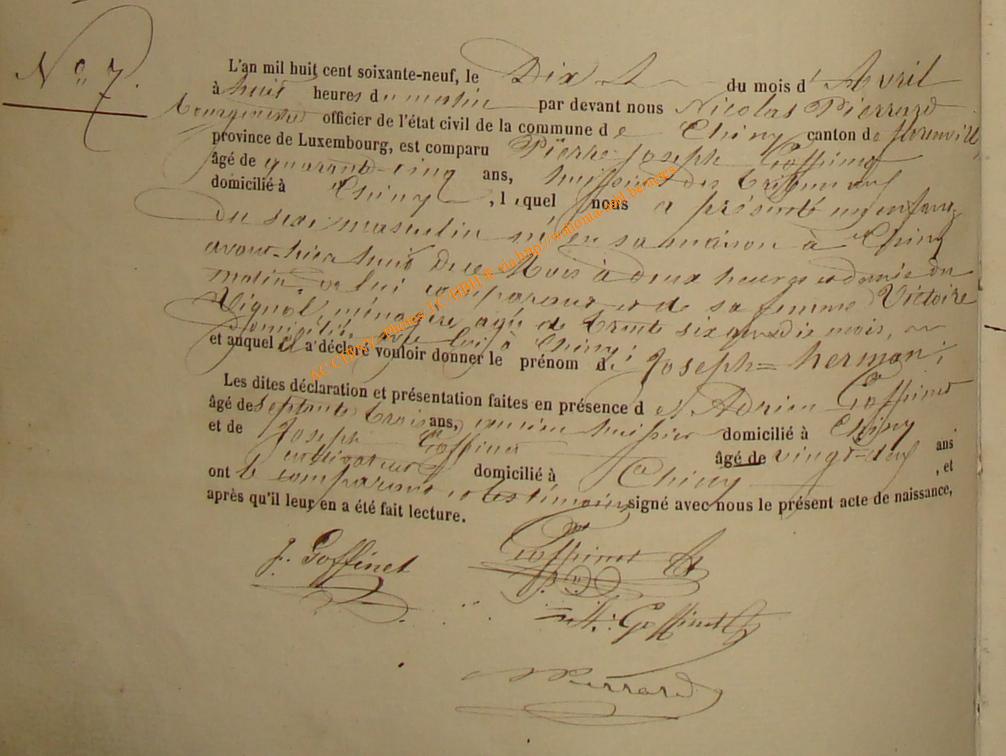 N° 7.
L'an mil huit cent soixante-neuf, le Dix du mois d'Avril
à huit heures du matin par devant nous Nicolas Pierrard
bourgmestre officier de l'état civil de la commune de Chiny canton de florenville,
province de Luxembourg, est comparu Pierre Joseph Goffinet
âgé de quarante-cinq ans, huissier des tribunaux
domicilié à Chiny, lequel nous a présenté un enfant
du sexe masculin né en sa maison à Chiny
avant-hier huit de ce mois à deux heures et demie du
matin, de lui comparant et de sa femme Victoire
Vignol, ménagère agée de trente six ans dix mois,
domiciliée avec lui à Chiny;
et auquel il a déclaré vouloir donner le prénom de Joseph=herman;
Les dites déclaration et présentation faites en présence de Adrien Goffinet
âgé de septante trois ans, ancien huissier domicilié à Chiny
et de Joseph Goffinet âgé de vingt=deux ans
cultivateur domicilié à Chiny, et
ont le comparant et les témoins signé avec nous le présent acte de naissance,
après qu'il leur en a été fait lecture.
J. Goffinet
Goffinet
A. Goffinet
N Pierrard